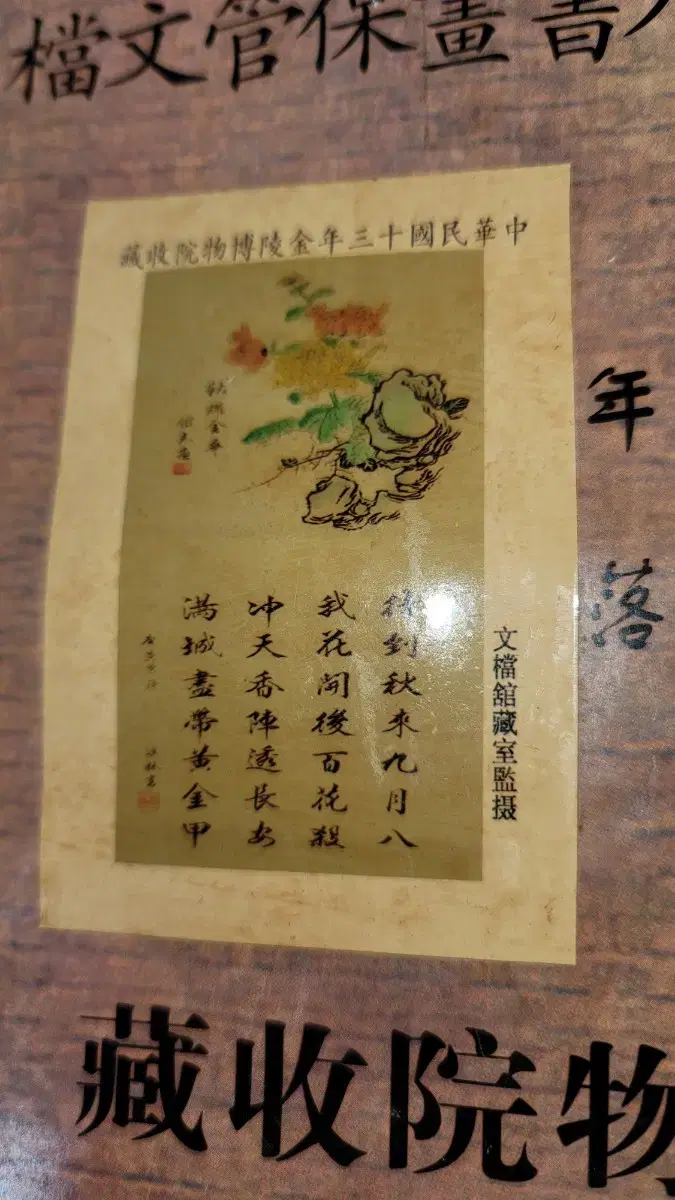 書畫保管文檔
中華民國十三年金陵博物院收藏
年
落
文檔舘藏室監摄
待到秋來九月八
我花開後百花殺
冲天香陣透長安
满城盡帶黄金甲
物院收藏